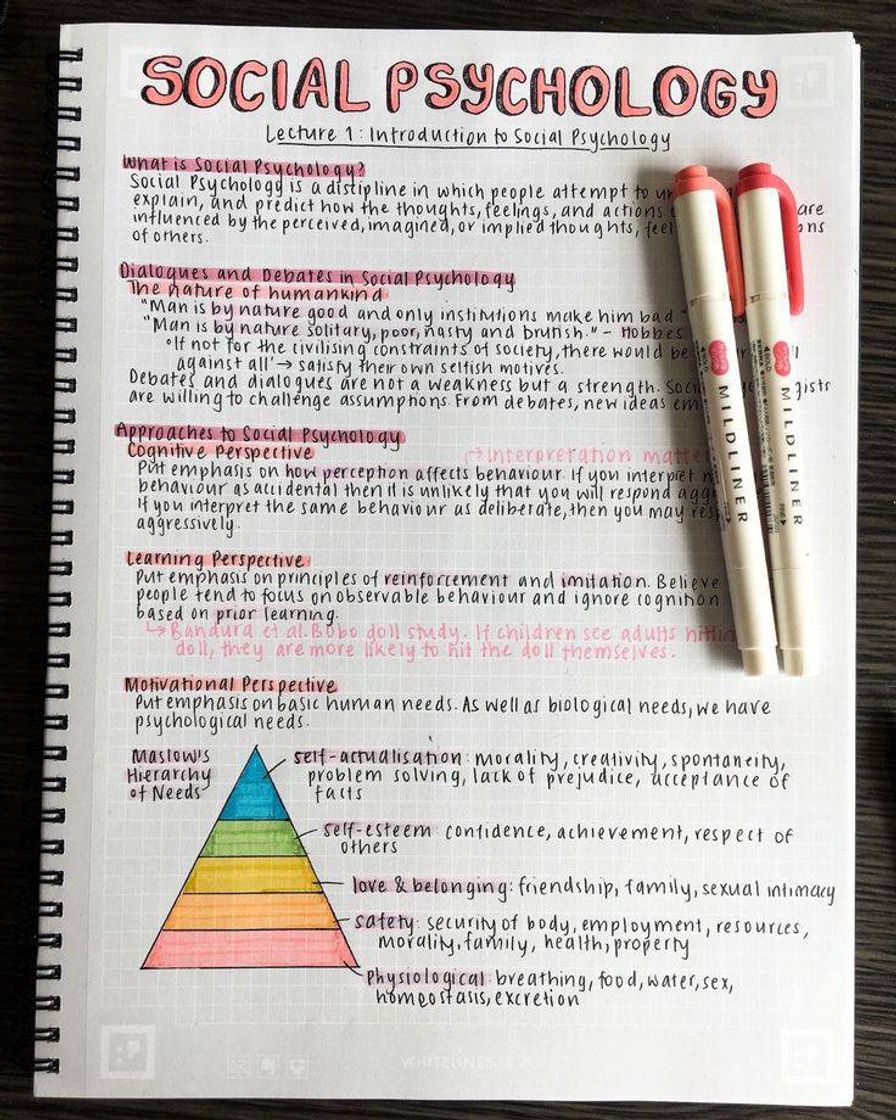 SOCIAL PSYCHOLOGY
Lecture 1: Introduction to Social Psychology
What is Social Psychology?
Social Psychology is a distipline in which people attempt to
explain, and predict how the thoughts, feelings, and actions are
influenced by the perceived, imagined, or implied thoughts,
of others.
Dialogues and Debates in Social Psychology
The nature of humankind
"Man is by nature good and only institutions make him bad."
"Man is by nature solitary, poor, nasty and brutish." - Hobbes
°If not for the civilising constraints of society, there would be
against all' → satisfy their own selfish motives.
Debates and dialogues are not a weakness but a strength.
are willing to challenge assumptions. From debates, new ideas
Approaches to Social Psychology
Cognitive Perspective
Interpretation
Put emphasis on how perception affects behaviour. If you interpret
behaviour as accidental then it is unlikely that you will respond
If you interpret the same behaviour as deliberate, then you may
aggressively.
Learning Perspective
Put emphasis on principles of reinforcement and imitation. Believe
people tend to focus on observable behaviour and ignore cognition
based on prior learning.
Bandura et al. Bobo doll study. If children see adults
doll, they are more likely to hit the doll themselves.
Motivational Perspective
Put emphasis on basic human needs. As well as biological needs, we have
psychological needs.
Maslow's
Hierarchy
of Needs
self-actualisation: morality, creativity, spontaneity,
problem solving, lack of prejudice, acceptance of
facts
self-esteem: confidence, achievement, respect of
others
love & belonging: friendship, family, sexual intimacy
safety: security of body, employment, resources,
morality, family, health, property
Physiological: breathing, food, water, sex,
homeostasis, excretion
MILDLINER
MILDLINER